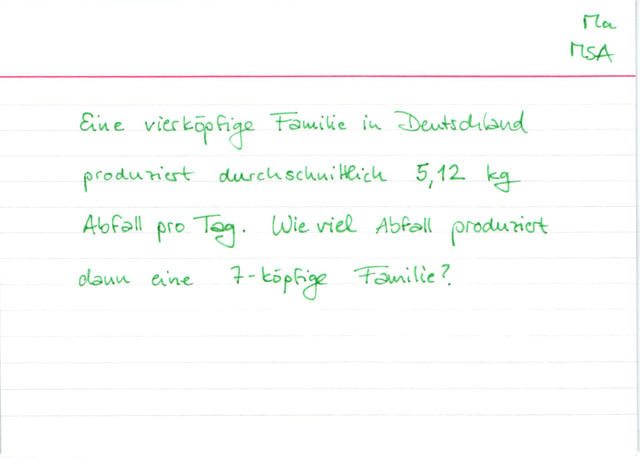 Ma
MSA
Eine vierköpfige Familie in Deutschland
produziert durchschnittlich 5,12 kg
Abfall pro Tag. Wie viel Abfall produziert
dann eine 7-köpfige Familie?